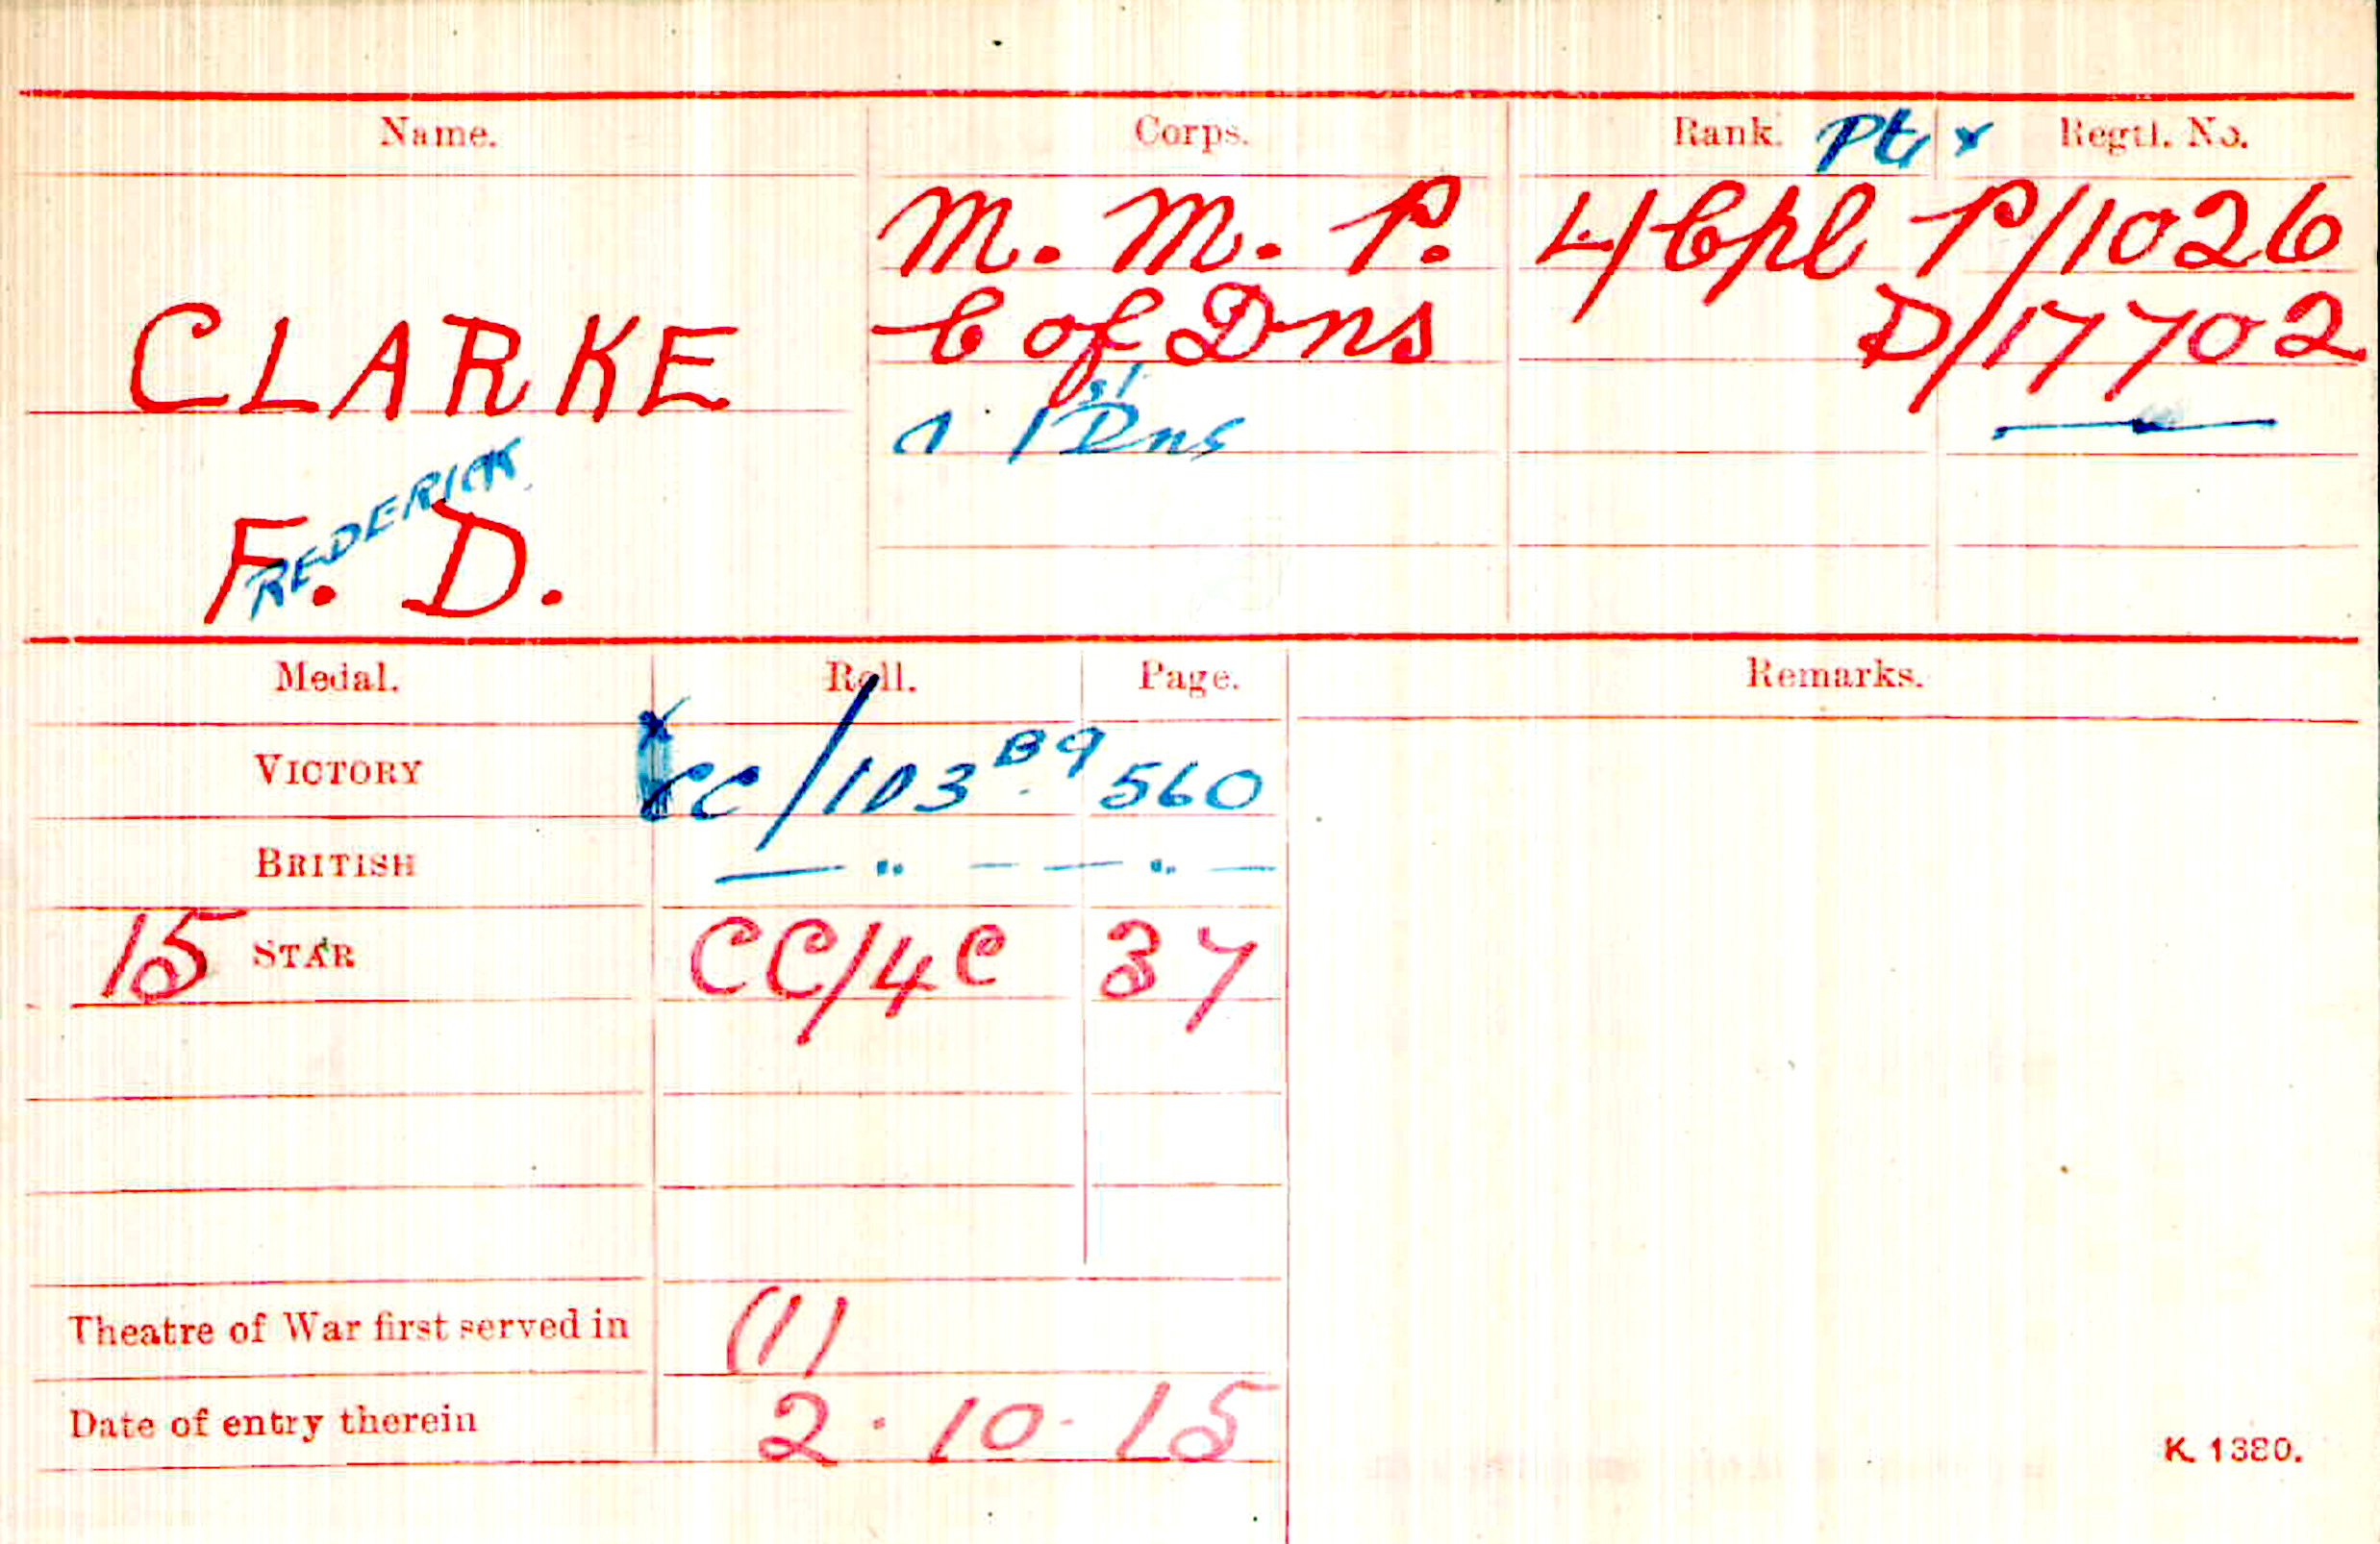 Name. Corps. Rank. Pte x Regtl. No.
M. M. P. L/Cpl P/1026
CLARKE C of Dns D/17702
1 Dns
FREDERICK
F. D.
Medal. Roll. Page. Remarks.
VICTORY x CC/103 B9 560
BRITISH — " — — " —
15 STAR CC/4C 37
Theatre of War first served in (1)
Date of entry therein 2.10.15
K. 1380.